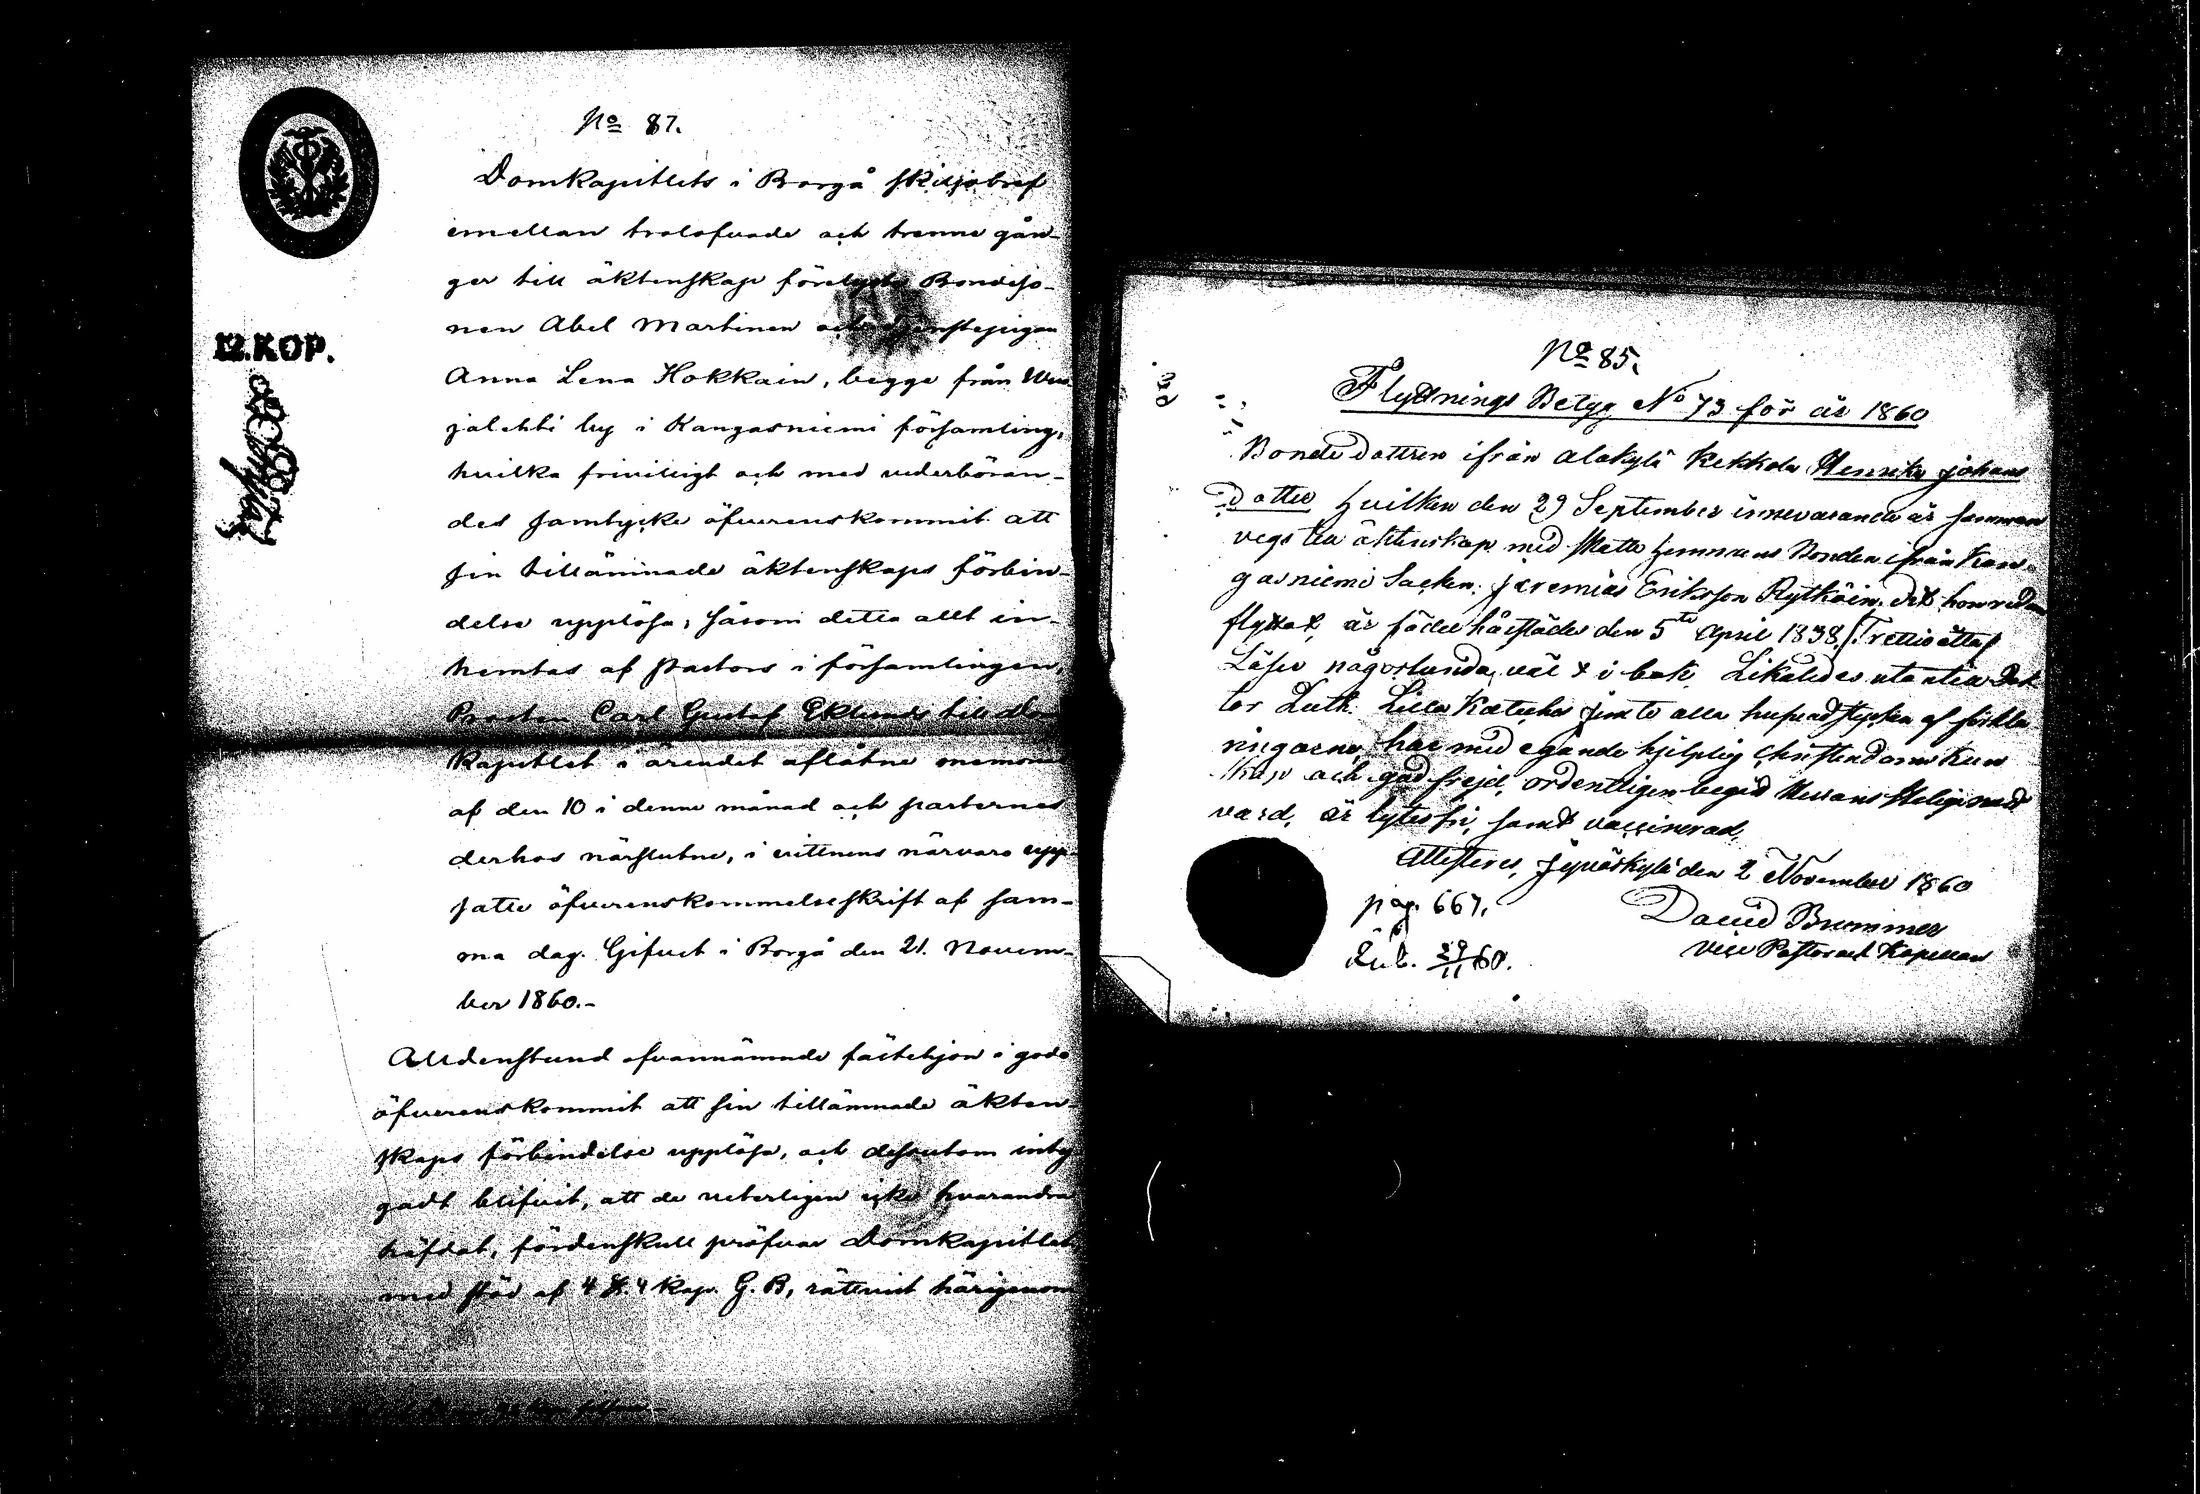 No 87.
Domkapitlets i Borgå skiljobref
emellan trolofvade och trenne gån-
ger till äktenskap förelyste Bondeso-
nen Abel Martinen och tjenstepigan
Anna Lena Hokkain, begge från
jalahti by i Kangasniemi församling,
hvilka frivilligt och med vederböran-
des samtycke öfverenskommit att
sin tillämnade äktenskaps förbin-
delse upplösa; såsom detta allt in-
hemtas af Pastors i församlingen,
Prosten Carl Gustaf Eklunds till Dom
Kapitlet i ärendet aflåtne
af den 10 i denne månad och parternes
derhos närslutne, i vittnens närvaro upp-
satte öfverenskommelseskrift af sam-
ma dag. Gifvet i Borgå den 21. Novem-
ber 1860.-
Alldenstund ofvannämnde fästehjon i godo
öfverenskommit att sin tillämnade äkten-
skaps förbindelse upplösa, och dessutom intyg
gadt blifvit, att de veterligen icke hvarandra
häfdat, fördenskull pröfvar Domkapitlet
med stöd af 4 §. 4 Kap. G. B, rättvist härigenom
12.KOP.
No 85.
Flyttnings Betyg No 73 för år 1860
Bonde dottren ifrån Alakylä Kekkola Henrika Johans
dotter hvilken den 29 September innevarande år samman
vigs till äktenskap med Skatte hemmans Bonden ifrån Kan-
gasniemi Socken, Jeremias Eriksson Rytköin, dit hon redan
flyttat, är född härstädes den 5te April 1838, (Trettioåtta)
Läser någorlunda väl i bok. Likaledes utantill Dok
tor Luth. Lilla Kateches jemte alla hufvudstycken af förkla
ringarne, har med egande hjelplig christendoms kun
skap och god frejd, ordentligen begid Herrans Heliga natt
vard, är lytesfri, samt vaccinerad,
Attesteres, Jyväskylä den 2 November 1860
David Brummer
Vice Pastor och Kapellan
pag. 667.
29/11 60.